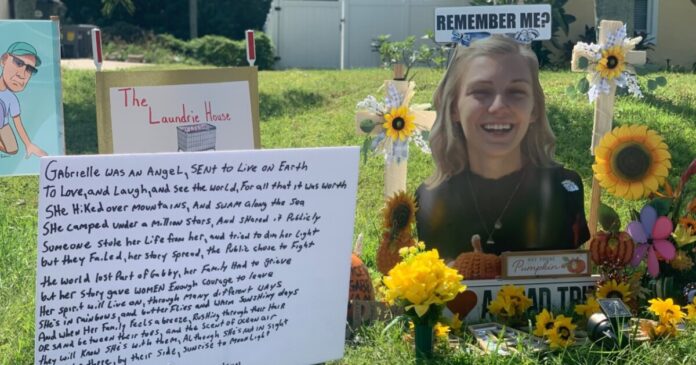 REMEMBER ME?
The Laundrie House
Gabrielle was an Angel, sent to Live on Earth
To Love, and Laugh, and see the world, for all that it was worth
She Hiked over Mountains, and swam along the Sea
She camped under a Million Stars, and shared it Publicly
Someone stole her Life from her, and tried to dim her Light
but they Failed, her story Spread, the Public chose to Fight
the world lost Part of Gabby, her Family Had to grieve
but her Story gave women Enough courage to leave
Her Spirit will Live on, through Many different ways
She's in rainbows, and butterflies and when Sunshiny days
And when Her Family feels a breeze, Rushing through their Hair
or sand between their toes, and the Scent of ocean air
they will Know She's with them, Although She's not in Sight
by their Side, Sunrise to Moonlight
Pumpkin